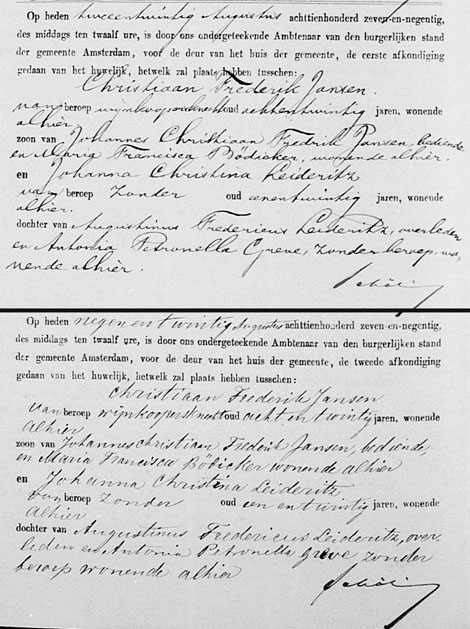 Op heden tweeentwintig Augustus achttienhonderd zeven-en-negentig,
des middags ten twaalf ure, is door ons ondergeteekende Ambtenaar van den burgerlijken stand
der gemeente Amsterdam, voor de deur van het huis der gemeente, de eerste afkondiging
gedaan van het huwelijk, hetwelk zal plaats hebben tusschen:
Christiaan Frederik Jansen.
van beroep wijnkoopersknecht oud achtentwintig jaren, wonende
alhier
zoon van Johannes Christiaan Fredrik Jansen, bediende
en Maria Francisca Bödicker, wonende alhier
en Johanna Christina Leideritz
van beroep zonder oud eenentwintig jaren, wonende
alhier.
dochter van Augustinus Fredericus Leideritz, overleden
en Antonia Petronella Greve, zonder beroep, wo-
nende alhier.
Op heden negen en twintig Augustus achttienhonderd zeven-en-negentig,
des middags ten twaalf ure, is door ons ondergeteekende Ambtenaar van den burgerlijken stand
der gemeente Amsterdam, voor de deur van het huis der gemeente, de tweede afkondiging
gedaan van het huwelijk, hetwelk zal plaats hebben tusschen:
Christiaan Frederik Jansen
van beroep wijnkoopersknecht oud acht en twintig jaren, wonende
alhier
zoon van Johannes Christiaan Frederik Jansen, bediende
en Maria Francisca Bödicker wonende alhier
en Johanna Christina Leideritz
van beroep zonder oud een en twintig jaren, wonende
alhier
dochter van Augustinus Fredericus Leideritz, over-
leden en Antonia Petronella Greve zonder
beroep wonende alhier